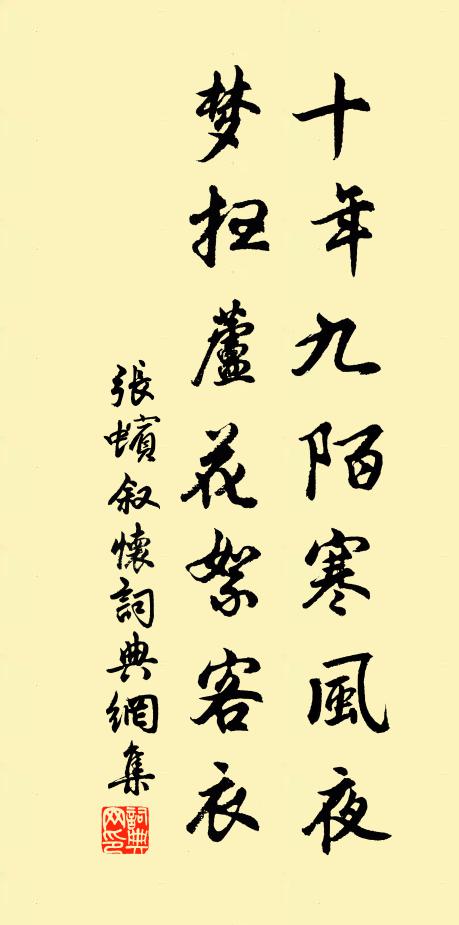 十年九陌寒風夜
梦扫蘆花絮客衣
張蠙叙懷詞典網集
詞典网印